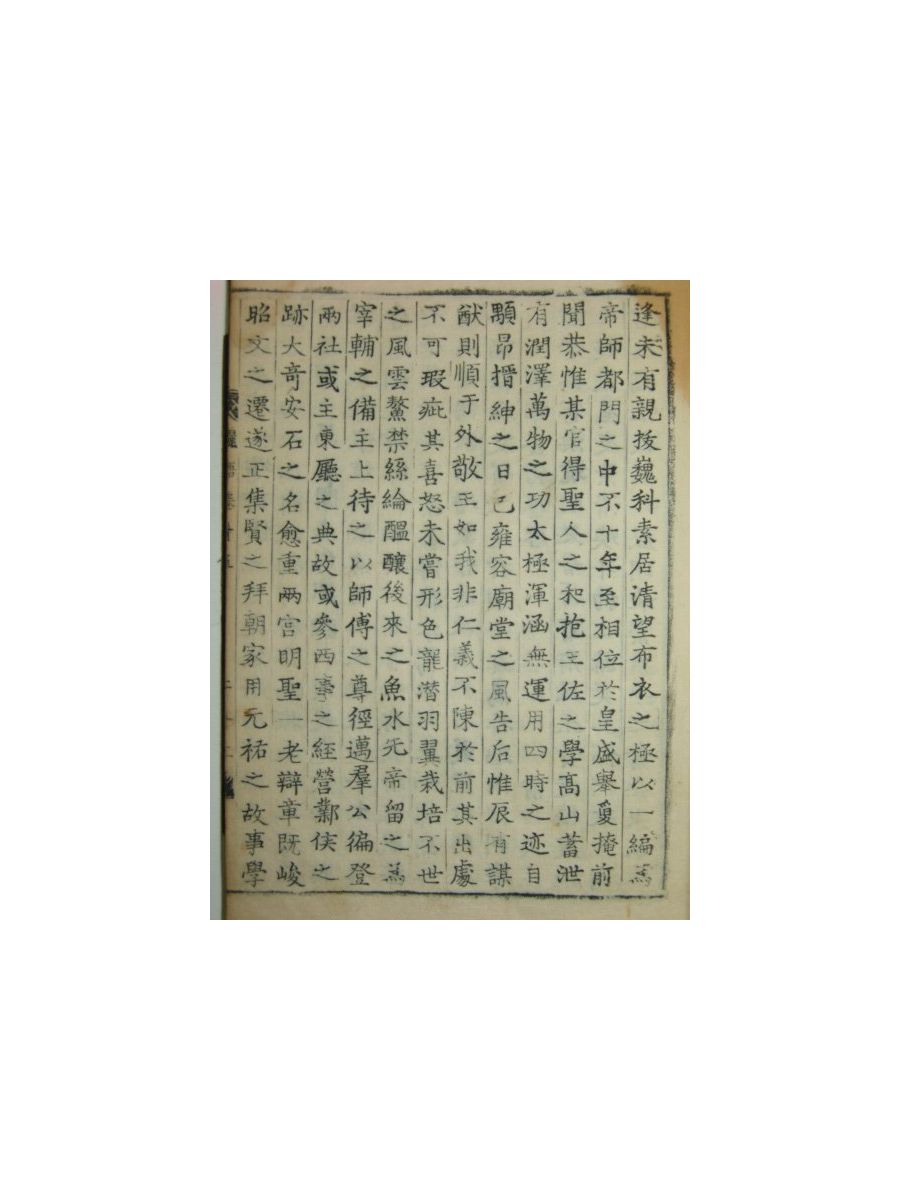 逢未有親抜巍科素居清望布衣之極以一編為
帝師都門之中不十年至相位於皇盛舉敻掩前
聞恭惟某官得聖人之和抱王佐之學髙山蓄泄
有潤澤萬物之功太極渾涵無運用四時之迹自
顒昂搢紳之日已雍容廟堂之風告后惟辰有謀
猷則順于外敬王如我非仁義不陳於前其出處
不可瑕疵其喜怒未嘗形色龍潜羽翼栽培不世
之風雲鰲禁絲綸醖釀後來之魚水先帝留之為
宰輔之備主上待之以師傅之尊徑邁羣公徧登
兩社或主東廳之典故或參西臺之経營酇侯之
跡大竒安石之名愈重兩宫明聖一老辯章既峻
昭文之遷遂正集賢之拜朝家用元祐之故事學